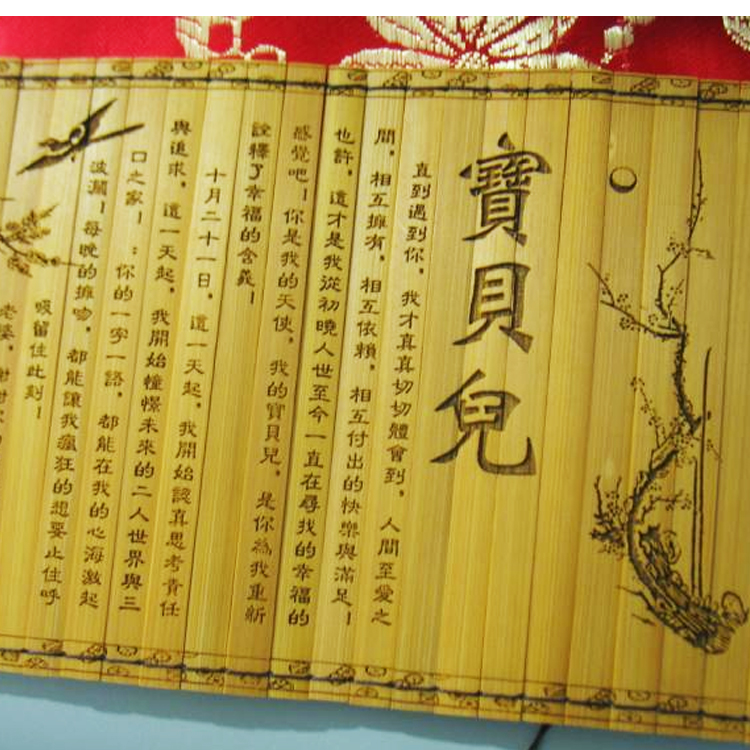 寶貝兒
直到遇到你，我才真真切切體會到，人間至愛之
間，相互擁有，相互依賴，相互付出的快樂與滿足！
也許，這才是我從初曉人世至今一直在尋找的幸福的
感覺吧！你是我的天使，我的寶貝兒，是你為我重新
詮釋了幸福的含義！
十月二十一日，這一天起，我開始認真思考責任
與追求，這一天起，我開始憧憬未來的二人世界與三
口之家！：你的一字一語，都能在我的心海激起
波瀾！每晚的擁吻，都能讓我瘋狂的想要止住呼
吸留住此刻！
老婆，謝謝